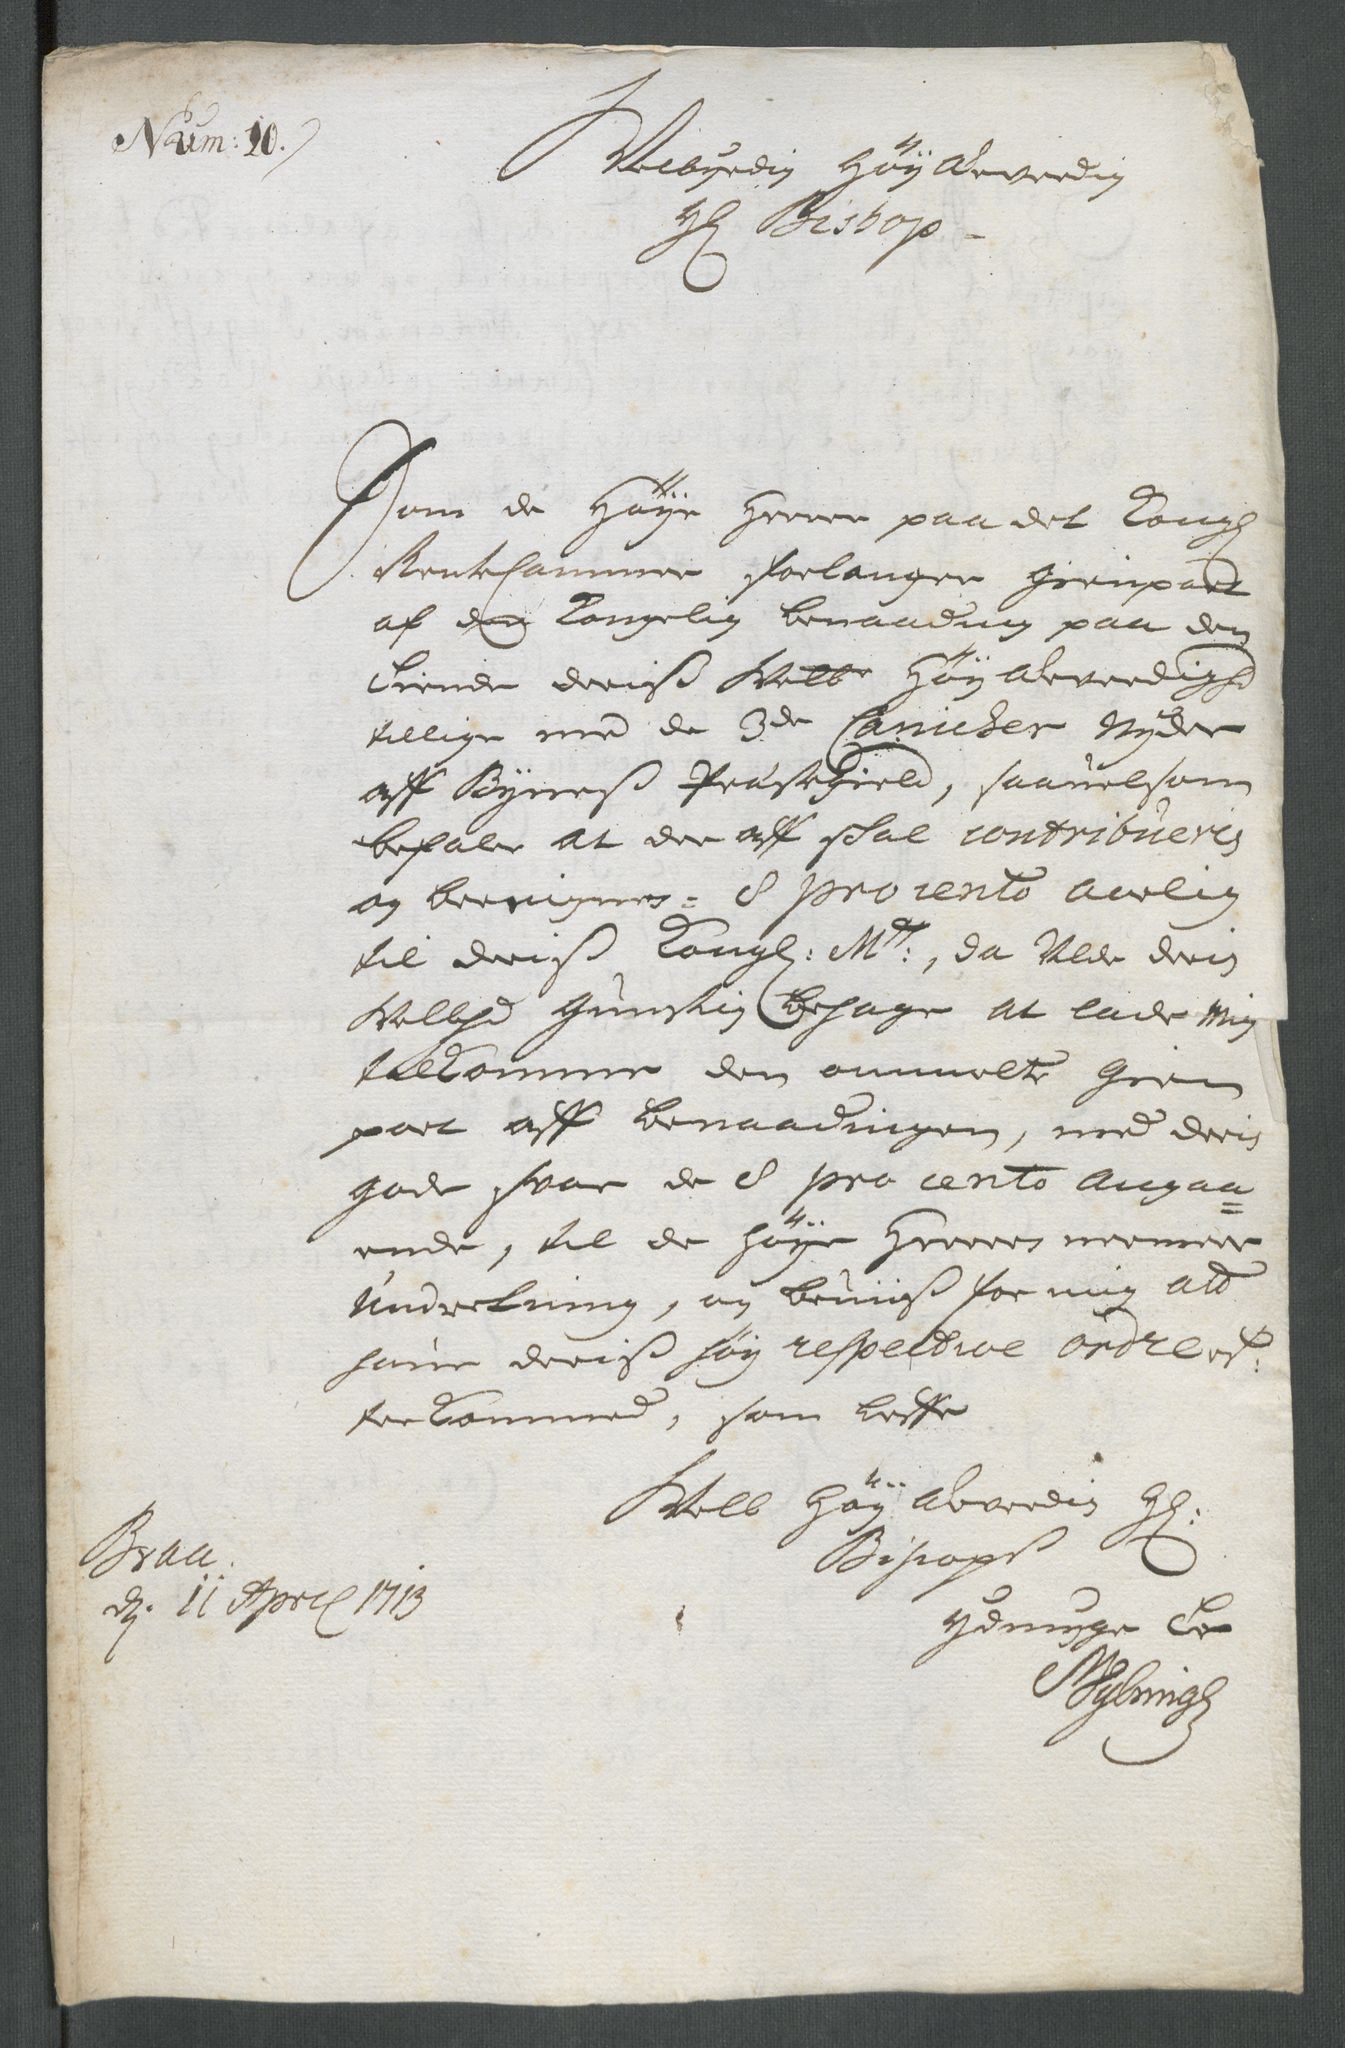 Num: 10.
Welbyrdig Høy Ærverdig
Hr Bishop
Som de Høye Herrer paa det Kongl
RenteCammer forlanger Gienpart
af den Kongelig benaading paa den
Tiende deris Welbr Høy Ærverdighd
tillige med de 3de Canicker Nyder
aff Byness Præstegield, saauelsom
befaler at der aff skal contribueris
og bereignes 8 pro cento Aarlig
til deriss Kongl: Mtt:, da Vilde deris
Welbhd gunstig behage at lade mig
tilkomme den ommelte Gien
part aff benaadingen, med deris
gode svar de 8 pro cento angaa=
ende, til de høye Herrers nermere
Underetning, og beviiss for mig att
haue deriss høy respective ordre ef:
terkommed, som leffr
Welb Høy Ærverdig Hr:
Bishops
ydmyge Te
Braa.
d. 11 April 1713